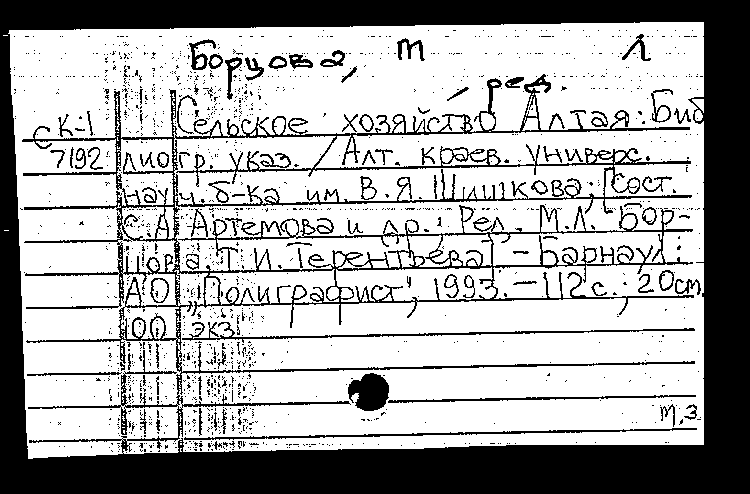 Борцова, М Л
, ред.
СК-1 Сельское хозяйство Алтая: Биб
7192 лиогр. указ. / Алт. краев. универс.
науч. б-ка им. В. Я. Шишкова; [Сост.
С.А. Артемова и др.; Ред. М.Л. Бор-
цова, Т. И. Терентьева] - Барнаул:
АО „Полиграфист", 1993. - 112 с.; 20 см.
100 экз
т, 3